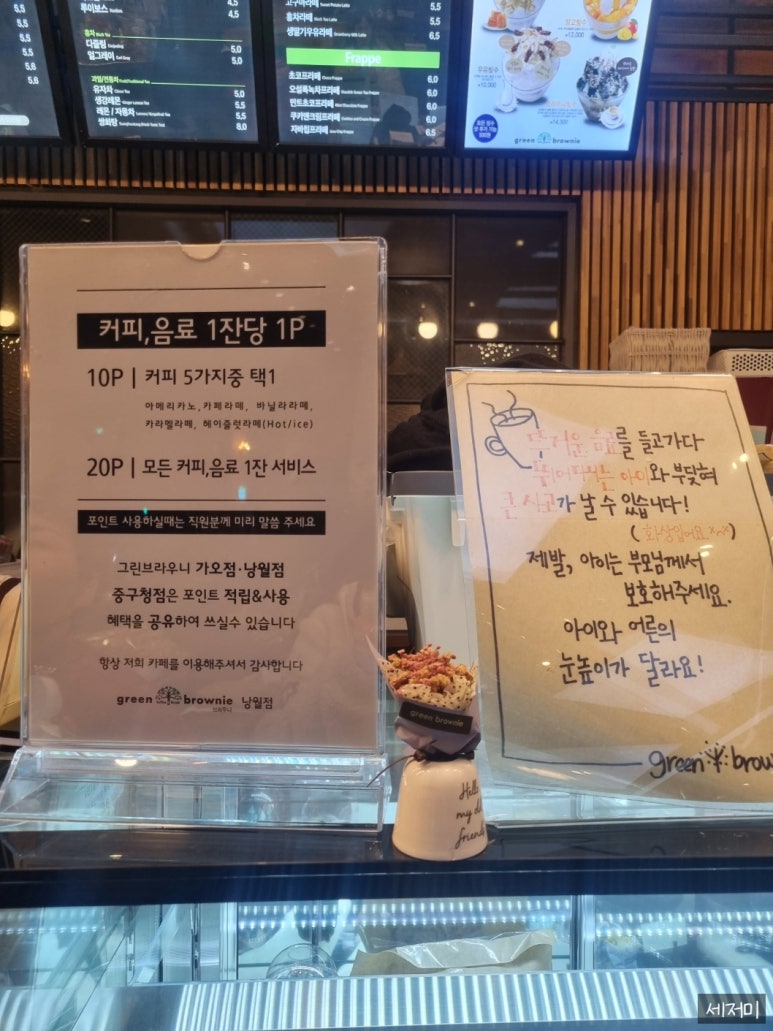 루이보스
4.5
홍차 Black Tea
다즐링 Darjeeling 5.0
얼그레이 Earl Grey 5.0
과일/전통차
유자차 5.0
생강레몬 5.5
레몬 / 자몽차 5.5
쌍화탕 8.0
5.5
5.5
5.6
5.6
고구마라떼 Sweet Potato Latte 5.5
홍차라떼 Black Tea Latte 5.5
생딸기우유라떼 Strawberry Milk Latte 6.5
Frappe
초코프라페 Choco Frappe 6.0
오설록녹차프라페 6.0
민트초코프라페 Mint Chocolate Frappe 6.0
쿠키앤크림프라페 Cookies and Cream Frappe 6.0
자바칩프라페 Java Chip Frappe 6.5
green brownie
커피,음료 1잔당 1P
10P | 커피 5가지중 택1
아메리카노,카페라떼, 바닐라라떼,
카라멜라떼, 헤이즐럿라떼(Hot/ice)
20P | 모든 커피,음료 1잔 서비스
포인트 사용하실때는 직원분께 미리 말씀 주세요
그린브라우니 가오점·낭월점
중구청점은 포인트 적립&사용
혜택을 공유하여 쓰실수 있습니다
항상 저희 카페를 이용해주셔서 감사합니다
green brownie 낭월점
브라우니
뜨거운 음료를 들고가다
뛰어다니는 아이와 부딪혀
큰 사고가 날 수 있습니다!
제발, 아이는 부모님께서
보호해주세요.
아이와 어른의
눈높이가 달라요!
green brow
green brownie
Hello
my
friend
세저미